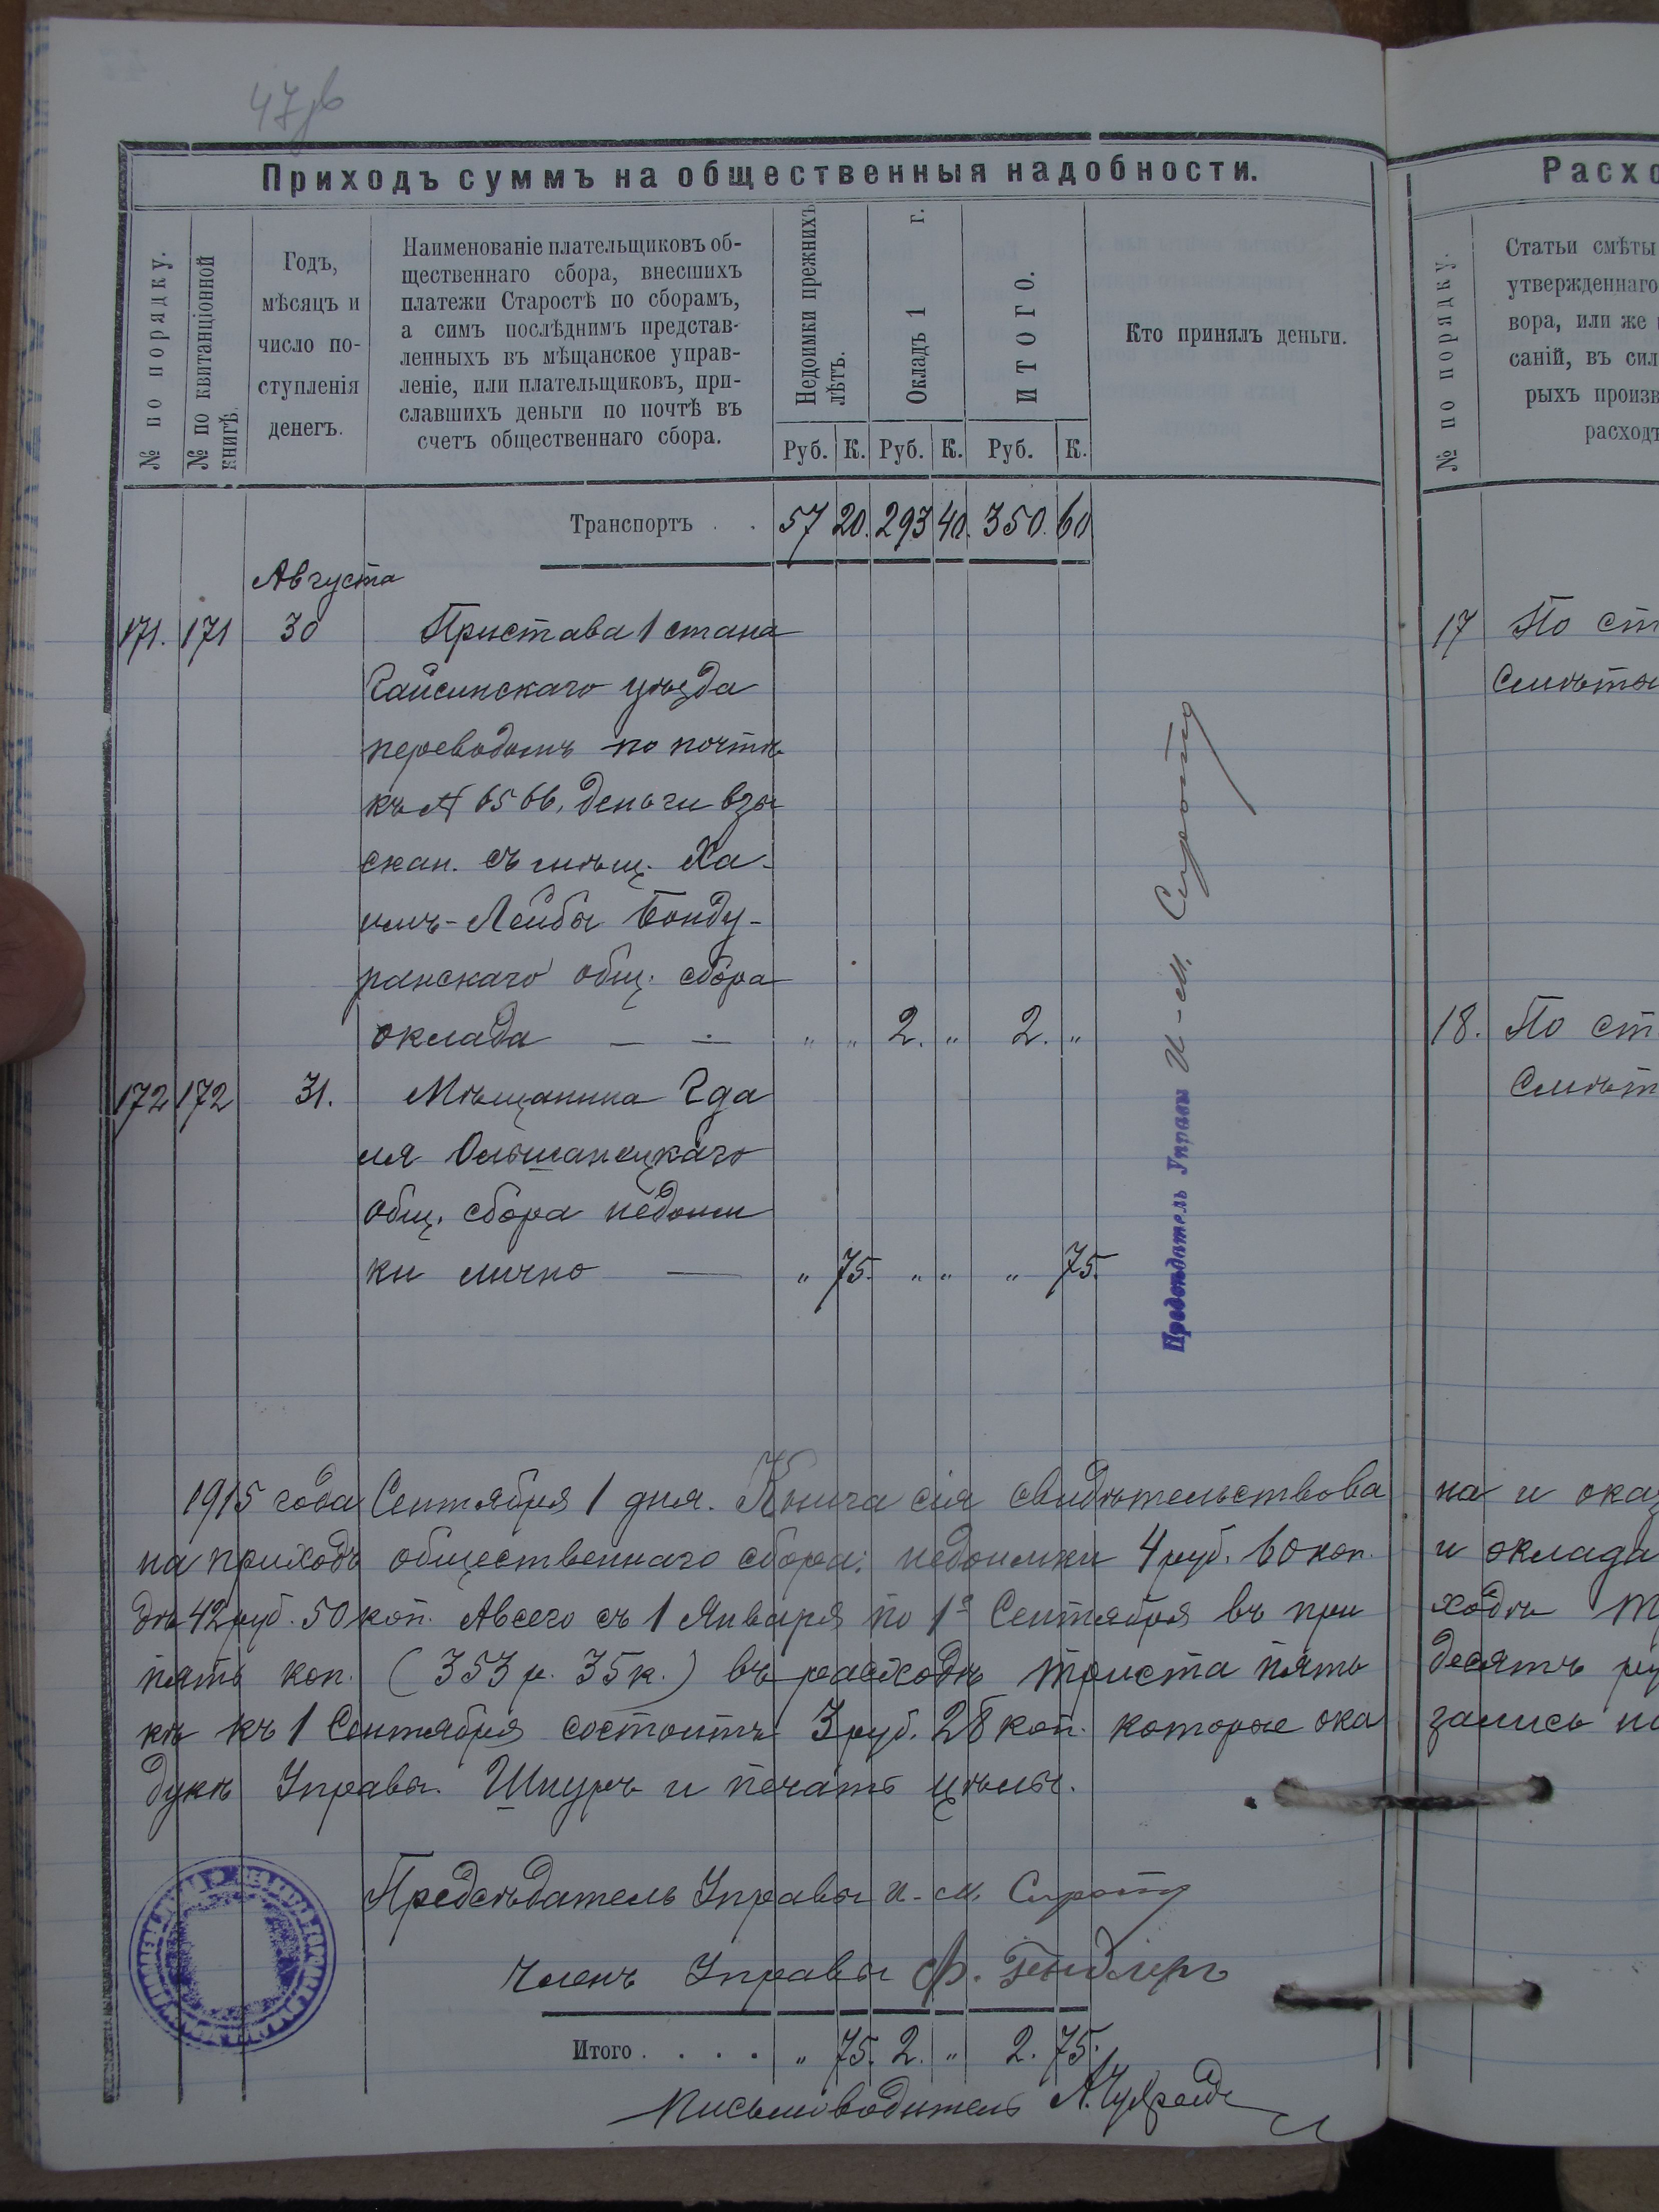 47
Приходъ суммъ на общественныя надобности.
№ по порядку.
№ по квитанціонной книгѣ.
Годъ,
мѣсяцъ и
число по-
ступленія
денегъ.
Наименованіе плательщиковъ об-
щественнаго сбора, внесшихъ
платежи Старостѣ по сборамъ,
а симъ послѣднимъ представ-
ленныхъ въ мѣщанское управ-
леніе, или плательщиковъ, при-
славшихъ деньги по почтѣ въ
счетъ общественнаго сбора.
Недоимки прежнихъ лѣтъ.
Окладъ 1 г.
ИТОГО.
Руб. К. Руб. К. Руб. К.
Кто принялъ деньги.
Транспортъ . . 57 20. 293 40. 350. 60
Августа
171. 171 30 Пристава 1 стана
Гайсинскаго уѣзда
переводомъ по почтѣ
къ № 6566, деньги взы
скан. съ мѣщ. Ха-
имъ-Лейбы Бонду-
рянскаго общ. сбора
оклада — — „ „ 2. „ 2. „
172 172 31. Мѣщанина Гда
ля Ольшанецкаго
общ. сбора недоим
ки лично — „ 75. „ „ „ 75.
Предсѣдатель Управы И-М. Сирота
1915 года Сентября 1 дня. Книга сія свидѣтельствова
на приходъ общественнаго сбора: недоимки 4 руб. 60 коп.
дѣ 42 руб. 50 коп. Авсего съ 1 Января по 1е Сентября въ при
пять коп. (353 р. 35 к.) въ расходѣ триста пять
къ къ 1 Сентября состоитъ 3 руб. 28 коп. которые ока
дукѣ Управы. Шнуръ и печать цѣлы.
Предсѣдатель Управы И-М. Сирота
Членъ Управы Ф. Гендлеръ
Итого . . . . „ 75. 2. „ 2. 75.
Письмоводитель
Расхо
№ по порядку.
Статьи смѣты
утвержденнаго
вора, или же
саній, въ сил
рыхъ произв
расходъ
17 По ст
Смѣты
18. По ст
Смѣт
на и оказ
и оклада
ходѣ т
десятъ ру
зались